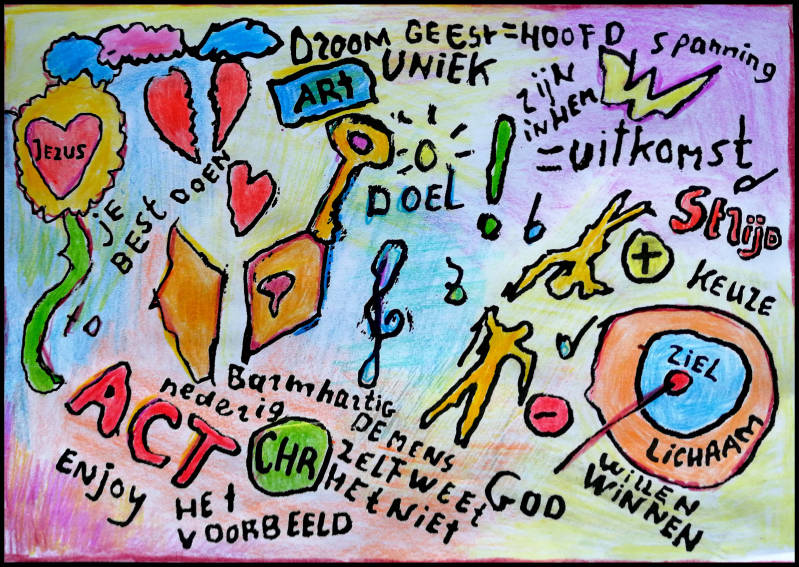 DROOM
GEEST=HOOFD
UNIEK
spanning
ARt
ZIJN
iN HEM
=uitkomst
JEZUS
JE
BEST DOEN
DOEL
!
Strijd
+
KEUZE
to
ACT
nederig
Barmhartig
ZIEL
LICHAAM
-
CHR
DE MENS
ZELF WEEt
HEt NiEt
ENJOY
HEt
VOORBEELD
GOD
WILLEN
WiNNEN